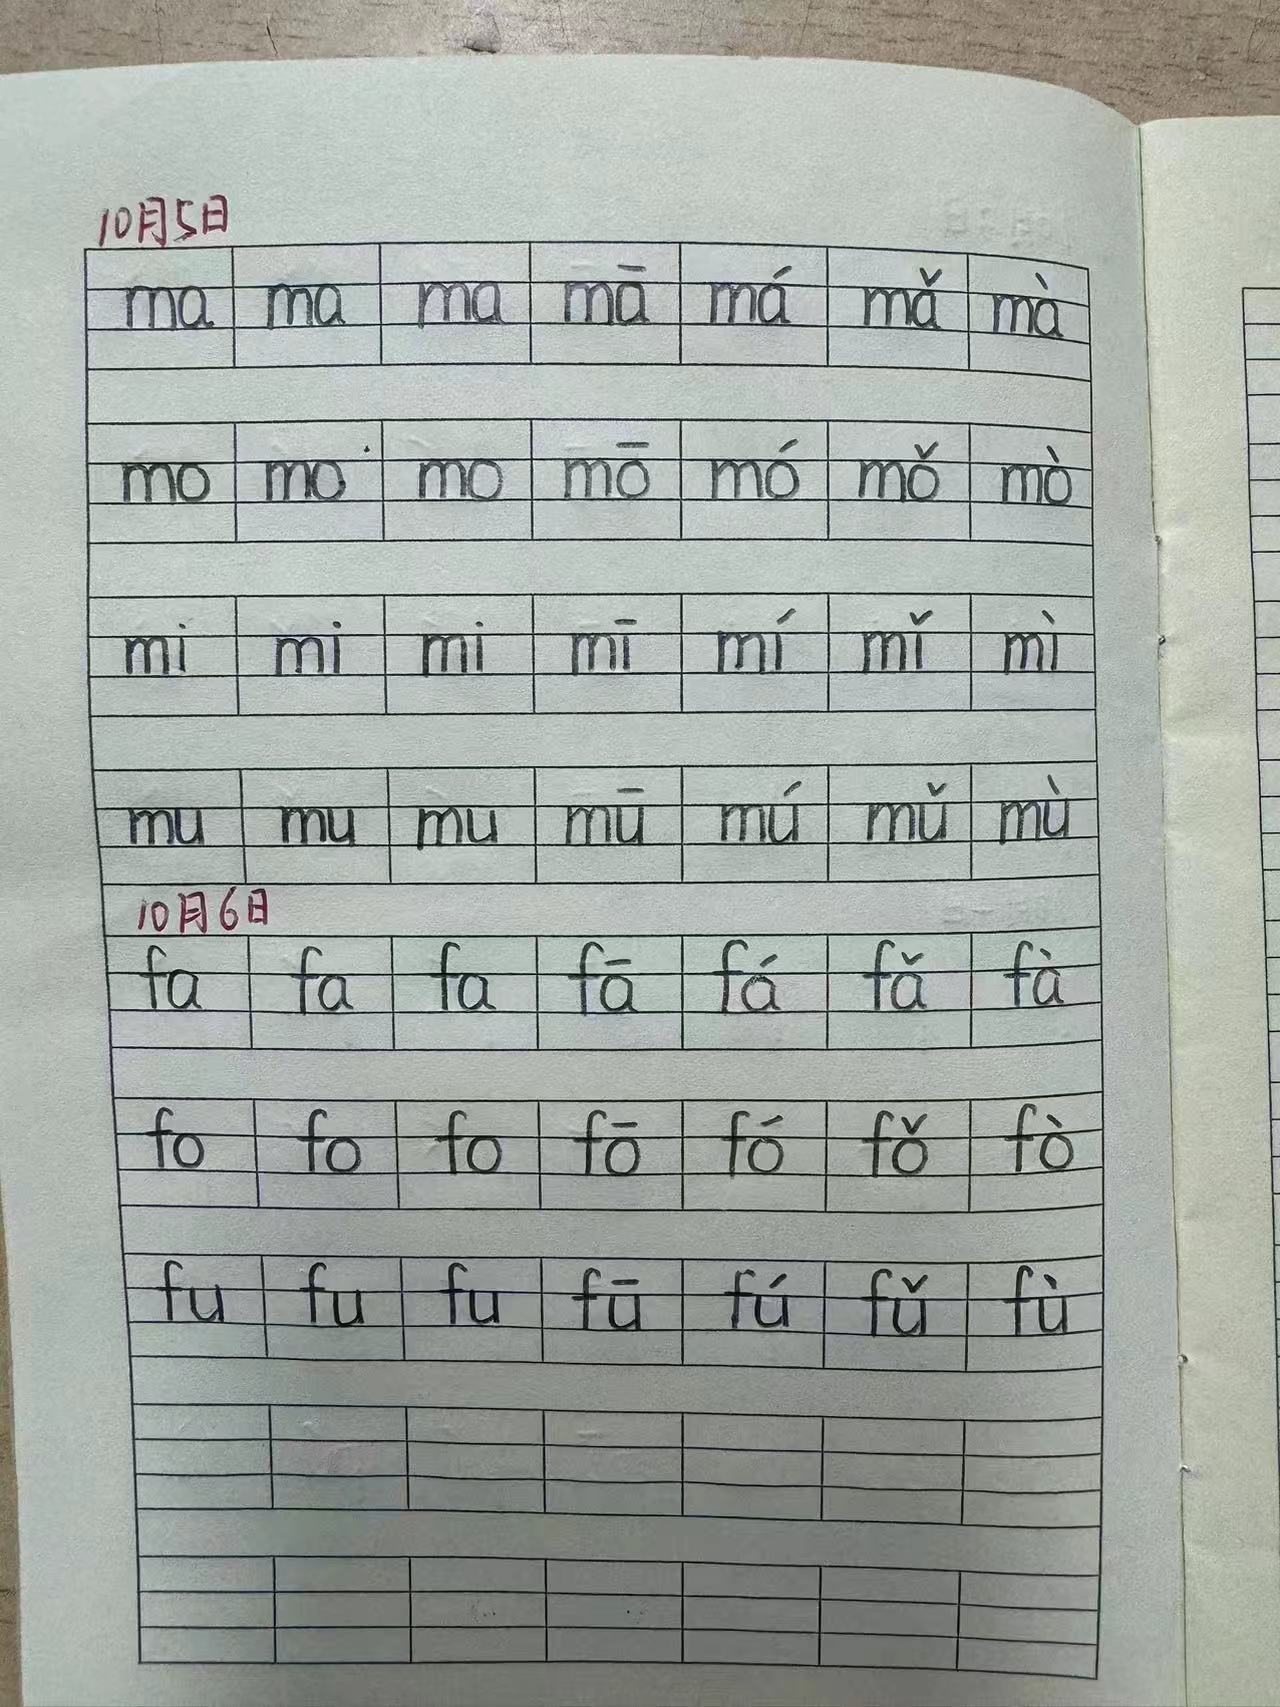 10月5日
ma ma ma mā má mǎ mà
mo mo mo mō mó mǒ mò
mi mi mi mī mí mǐ mì
mu mu mu mū mú mǔ mù
10月6日
fa fa fa fā fá fǎ fà
fo fo fo fō fó fǒ fò
fu fu fu fū fú fǔ fù